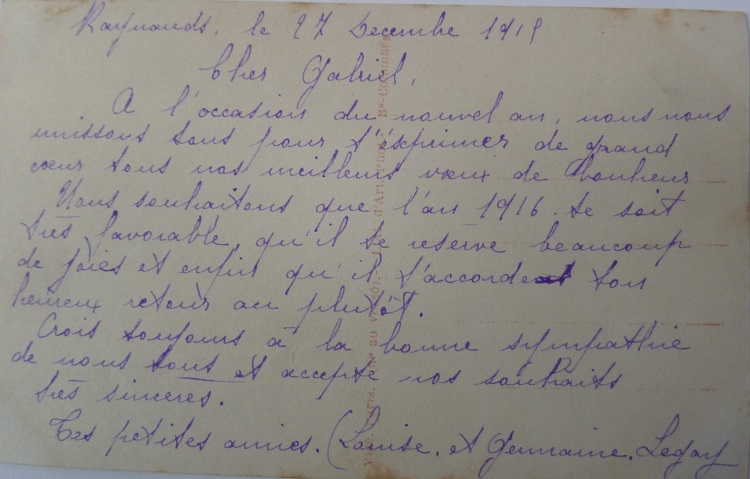 Raynands, le 27 Decembre 1915
Cher Gabriel,
A l'occasion du nouvel an, nous nous
unissons tous pour t'exprimer de grand
cœur tous nos meilleurs vœux de bonheur
Nous souhaitons que l'an 1916 te soit
très favorable, qu'il te réserve beaucoup
de joies et enfin qu'il t'accorde ton
heureux retour au plutôt.
Crois toujours à la bonne sympathie
de nous tous et accepte nos souhaits
très sincères.
Tes petites amies. (Louise. et Germaine. Legay